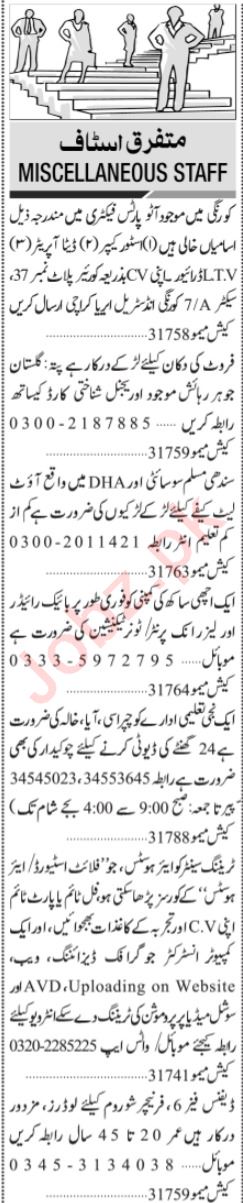 متفرق اسٹاف
MISCELLANEOUS STAFF
کورنگی میں موجود آٹو پارٹس فیکٹری میں مندرجہ ذیل
اسامیاں خالی ہیں (۱) اسٹور کیپر (۲) ڈیٹا آپریٹر (۳)
L.T.V ڈرائیور اپنی CV بذریعہ کوریئر پلاٹ نمبر 37،
سیکٹر 7/A کورنگی انڈسٹریل ایریا کراچی ارسال کریں
کیش میمو 31758
فروٹ کی دکان کیلئے لڑکے درکار ہے پتہ: گلستان
جوہر رہائش موجود اوریجنل شناختی کارڈ کیساتھ
رابطہ کریں ..... 0300-2187885
کیش میمو 31759
سندھی مسلم سوسائٹی اور DHA میں واقع آؤٹ
لیٹ کیفے کیلئے لڑکے لڑکیوں کی ضرورت ہے کم از
کم تعلیم انٹر رابطہ 0300-2011421
کیش میمو 31763
ایک اچھی ساکھ کی کمپنی کو فوری طور پر بائیک رائیڈر
اور لیزر انک پرنٹر / ٹونر ٹیکنیشین کی ضرورت ہے
موبائل ..... 0333-5972795
کیش میمو 31764
ایک نجی تعلیمی ادارے کو چپراسی، آیا، خالہ کی ضرورت
ہے 24 گھنٹے کی ڈیوٹی کرنے کیلئے چوکیدار کی بھی
ضرورت ہے رابطہ 34553645، 34545023
(پیر تا جمعہ: صبح 9:00 سے 4:00 بجے شام تک)
کیش میمو 31788
ٹریننگ سینٹر کو ایئر ہوسٹس، جو "فلائٹ اسٹیورڈ / ایئر
ہوسٹس" کے کورسز پڑھا سکتی ہو، فل ٹائم یا پارٹ ٹائم
اپنی C.V اور تجربہ کے کاغذات بھجوائیں، اور ایک
کمپیوٹر انسٹرکٹر جو گرافک ڈیزائننگ، ویب،
Uploading on Website، AVD اور
سوشل میڈیا پر پروموشن کی ٹریننگ دے سکے انٹرویو کیلئے
رابطہ کیجئے موبائل / واٹس ایپ 0320-2285225
کیش میمو 31741
ڈیفنس فیز 6، فرنیچر شوروم کیلئے لوڈرز، مزدور
درکار ہیں عمر 20 تا 45 سال رابطہ کریں
موبائل ..... 0345-3134038
کیش میمو 31759
Jobz.pk